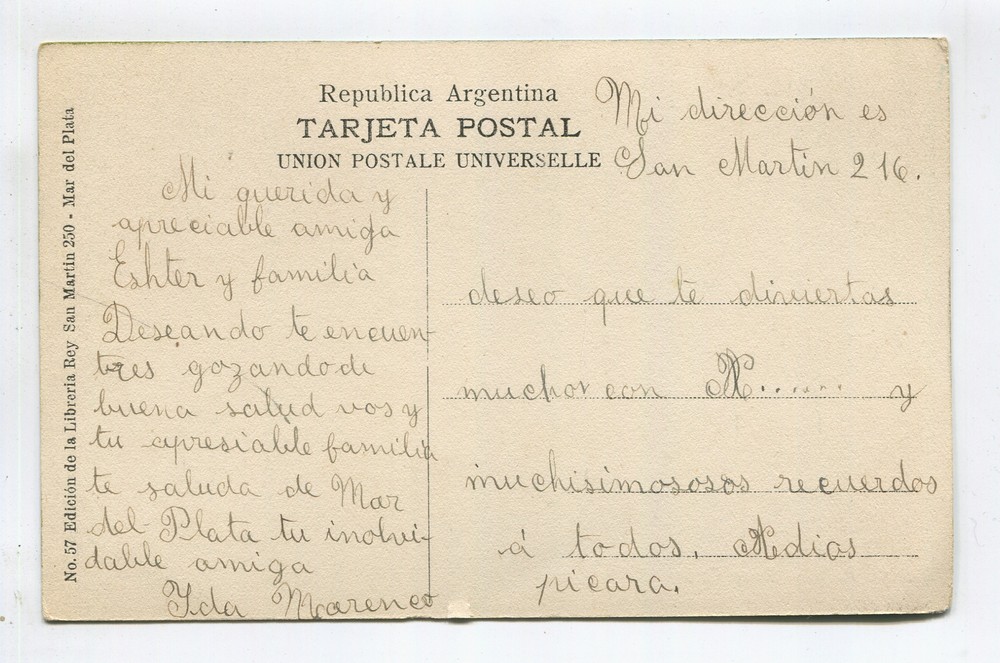 Republica Argentina
TARJETA POSTAL
UNION POSTALE UNIVERSELLE
No. 57 Edición de la Libreria Rey San Martin 250 - Mar del Plata
Mi dirección es
San Martin 216.
Mi querida y
apreciable amiga
Eshter y familia
Deseando te encuen-
tres gozando de
buena salud vos y
tu apresiable familia
te saluda de Mar
del Plata tu inolvi-
dable amiga
Yda Marenco
deseo que te diviertas
mucho con M...... y
muchisimososos recuerdos
á todos. Adios
picara.